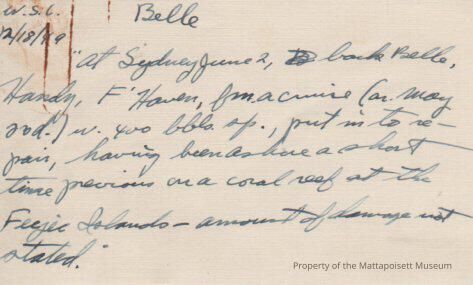 W.S.L.
Belle
12/18/49
"At Sydney June 2, back Belle,
Handy, F'Haven, fm a cruise (ar. May
22d.) w. 400 bbls. sp., put in to re-
pair, having been ashore a short
time previous on a coral reef at the
Feejee Islands – amount of damage not
stated."
Property of the Mattapoisett Museum